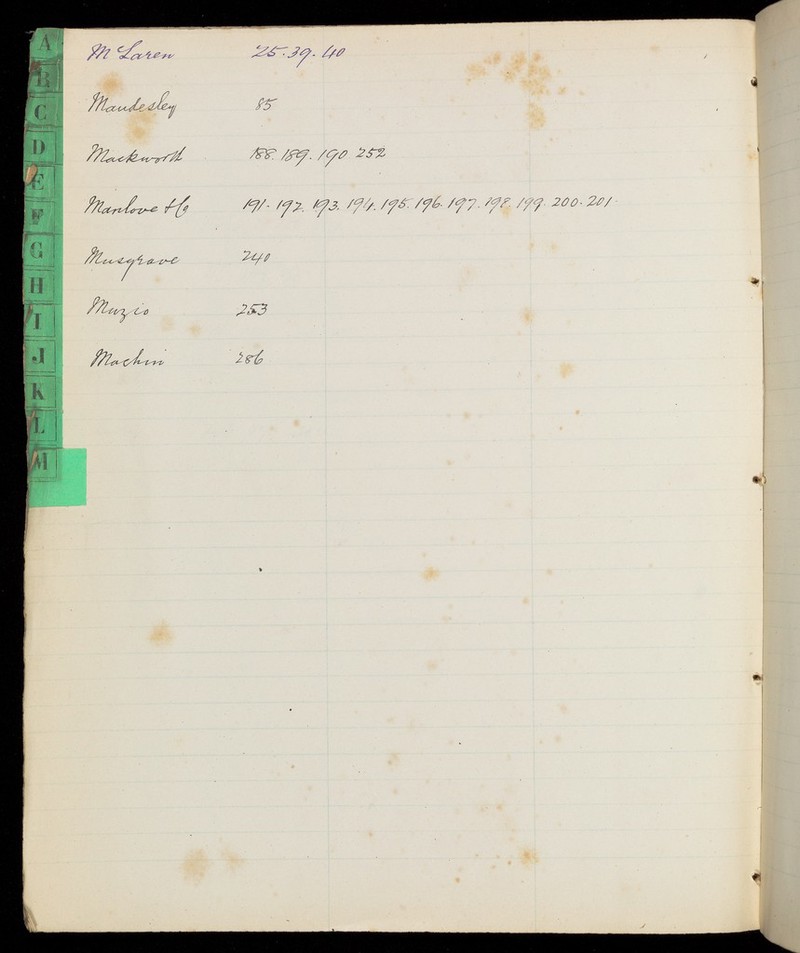 A
B
C
D
E
F
G
H
I
J
K
L
M
McLaren 25. 39. 40
Maudesley 85
Mackworth 188. 189. 190. 252
Manlove & Co 191. 192. 193. 194. 195. 196. 197. 198. 199. 200. 201.
Musgrave 240
Muzio 253
Machin 286